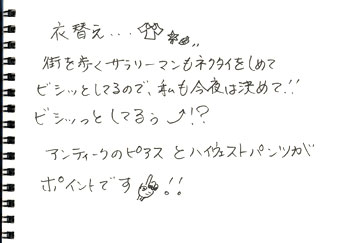 衣替え...
街を歩くサラリーマンもネクタイをしめて
ビシッとしてるので、私も今夜は決めて!!
ビシッっとしてるぅ⤴!?
アンティークのピアスとハイウェストパンツが
ポイントです!!